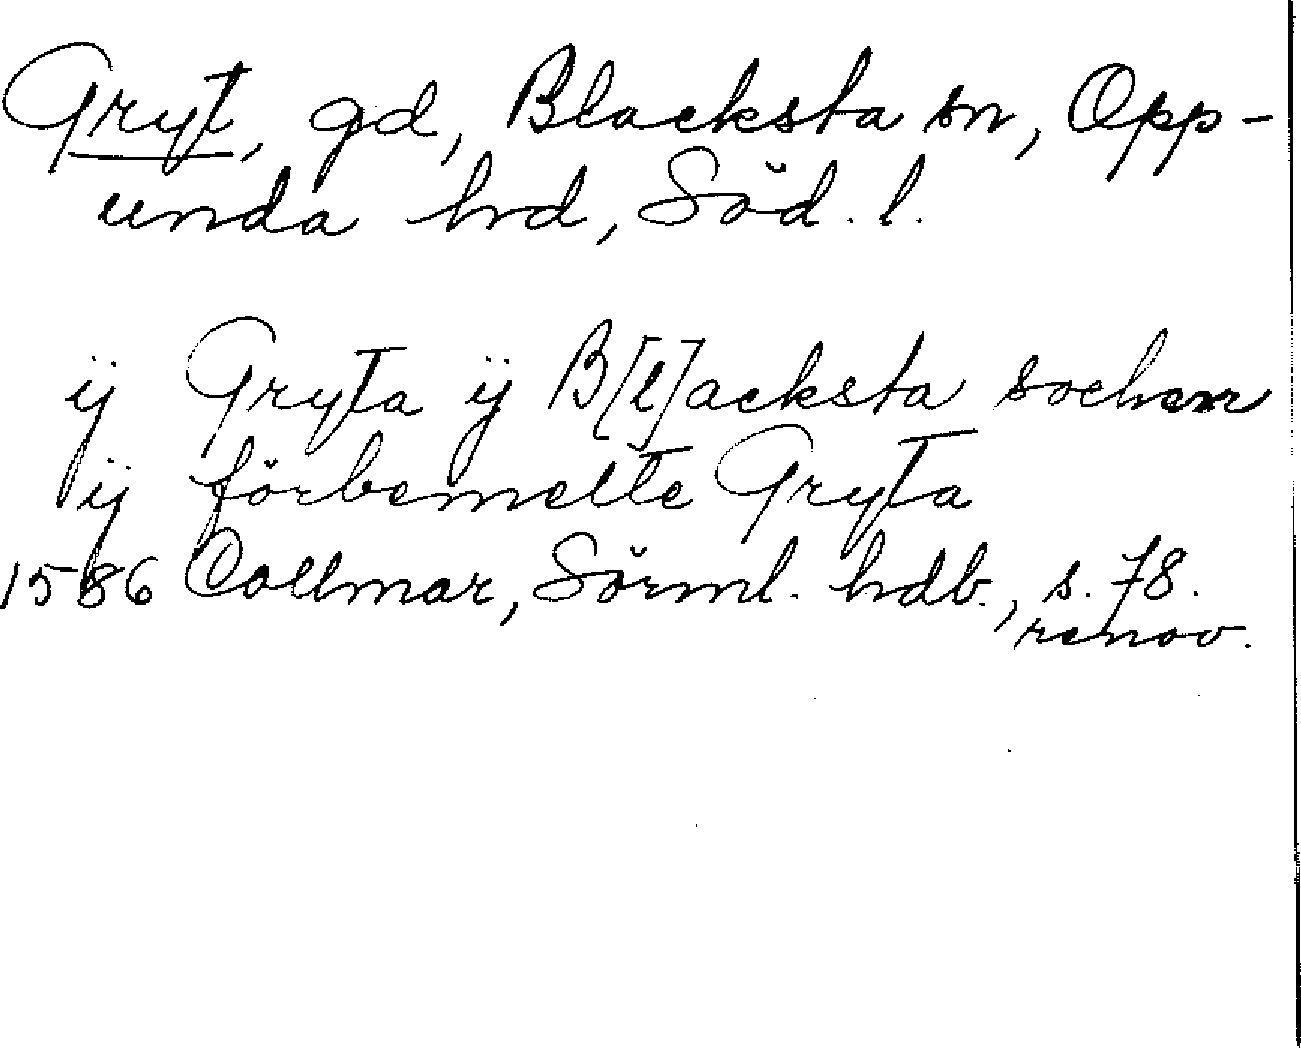 Gryt, gd, Blacksta sn, Opp-
unda hd, Söd. l.
ÿ Gryta ÿ B[l]acksta sochen
ÿ förbemelte Gryta
1586 Collmar, Sörml. hdb., s. 78.
renov.